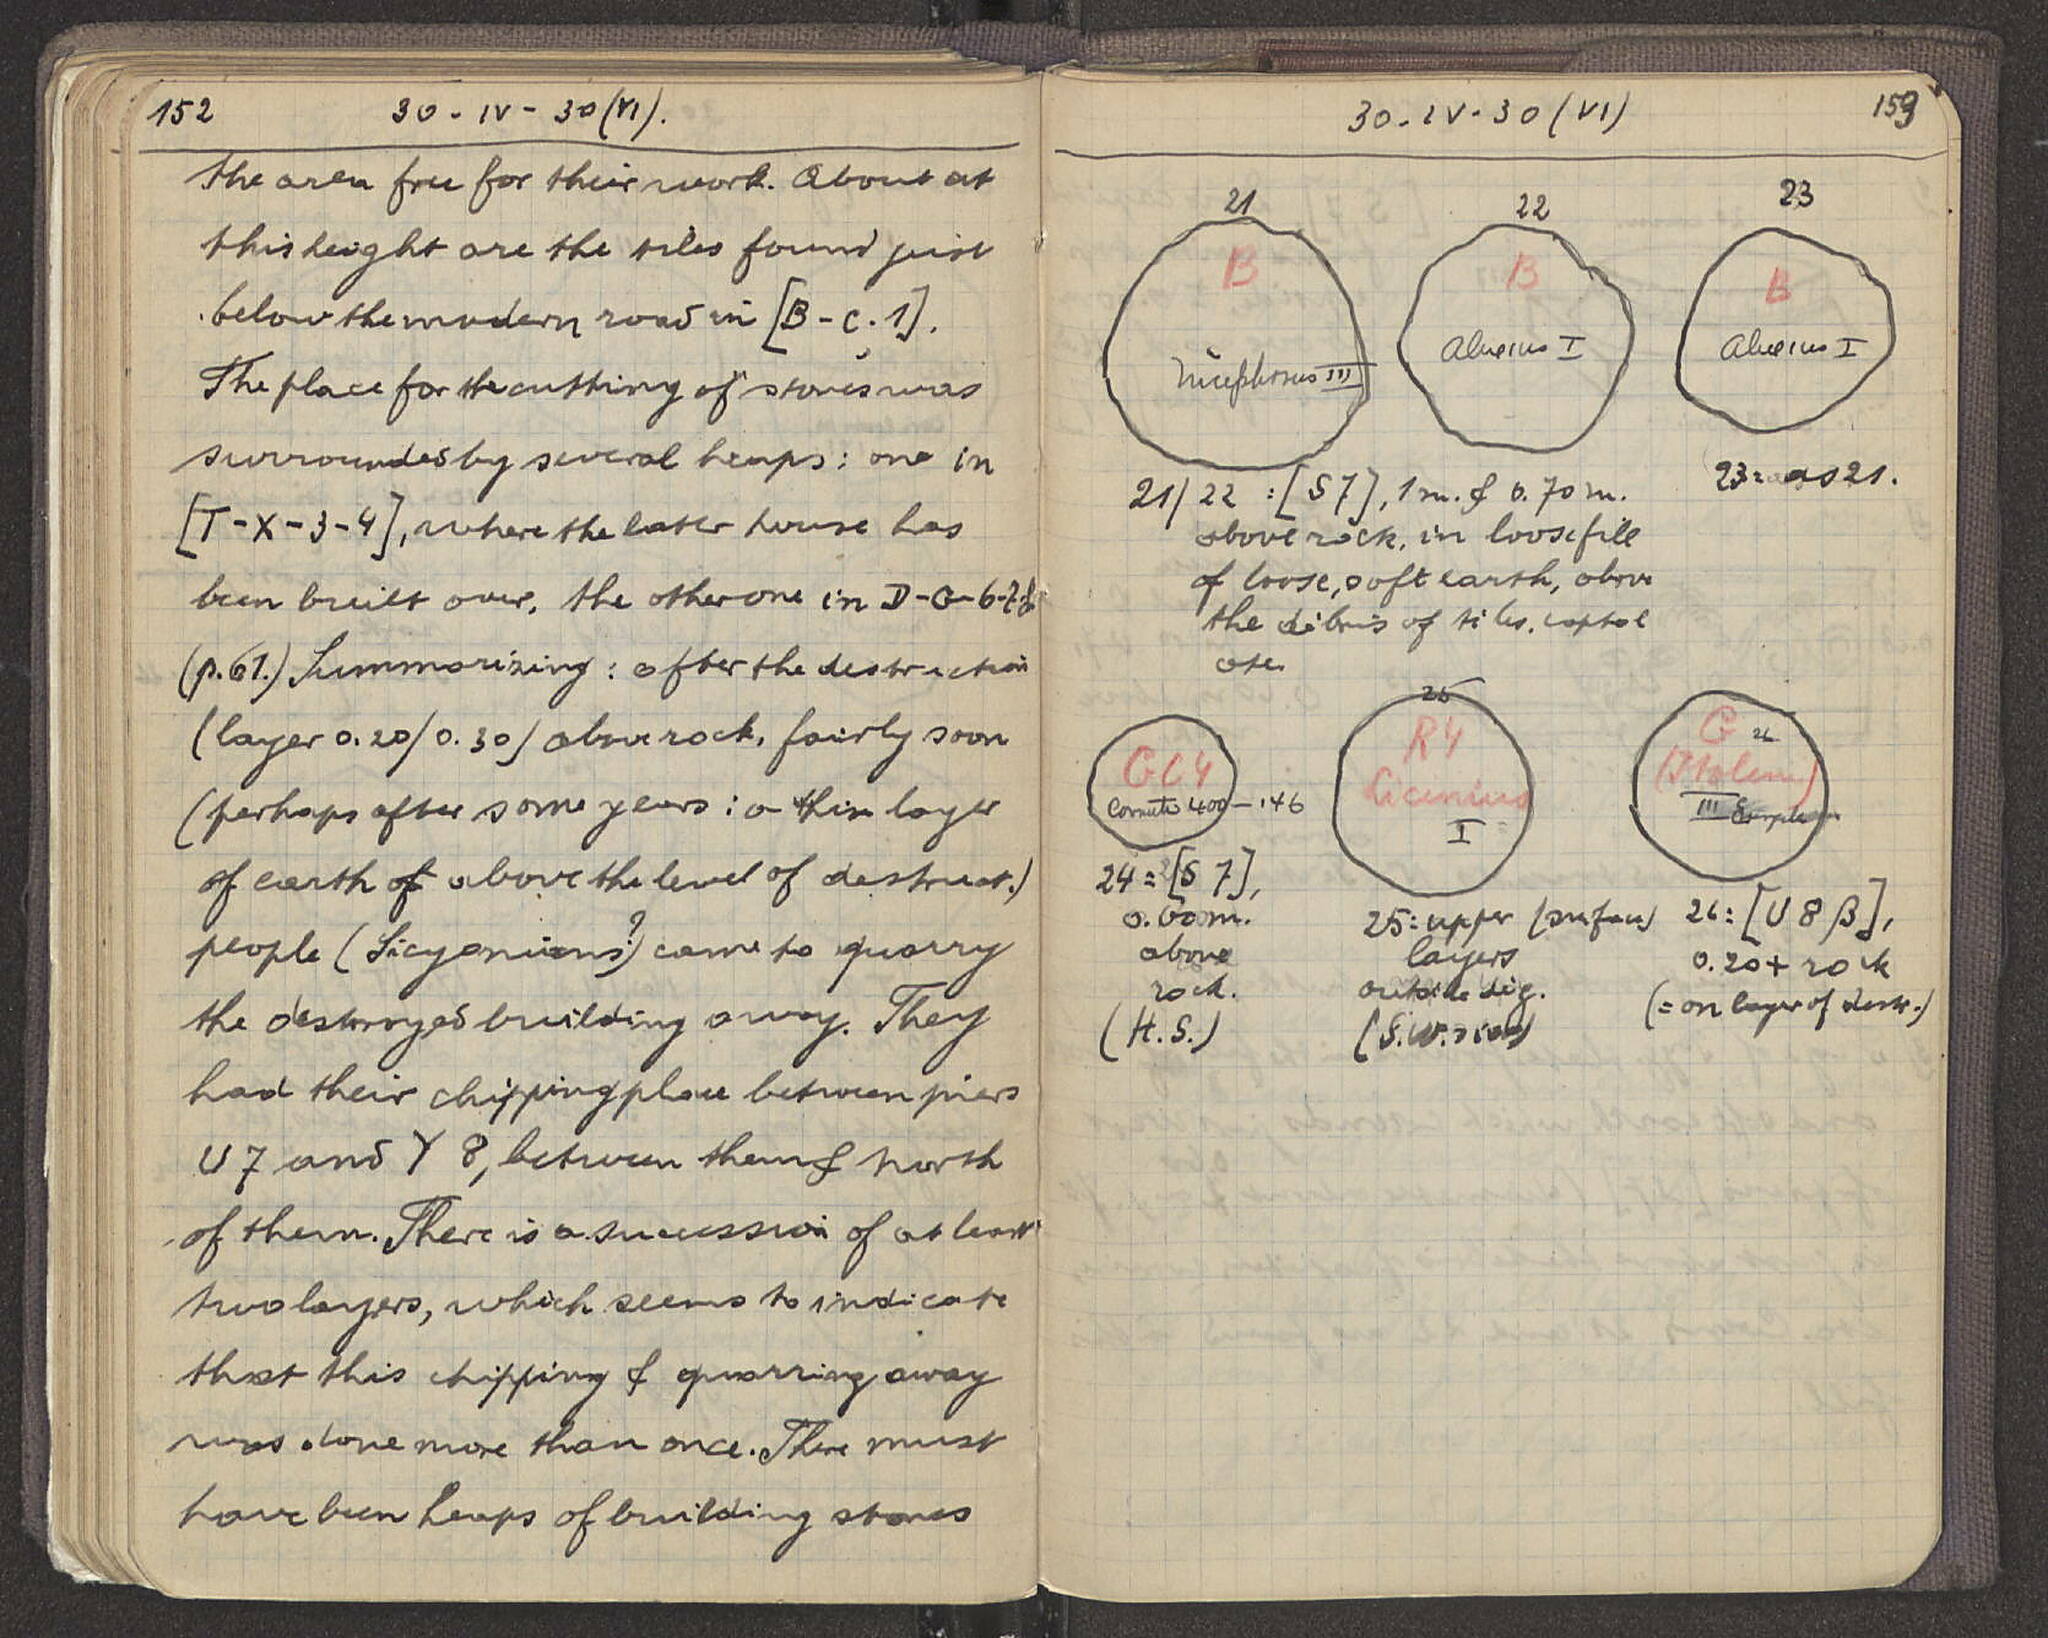 152 30-IV-30 (VI).
the area free for their work. About at
this height are the tiles found just
below the modern road in [B-C.1].
The place for the cutting of stones was
surrounded by several heaps: one in
[T-X-3-4], where the later house has
been built over, the other one in D-G-6-7-8
(p.61.) Summarizing: after the destruction
(layer 0.20/0.30) above rock, fairly soon
(perhaps after some years: a thin layer
of earth of above the level of destruct.)
people (Sicyonians?) came to quarry
the destroyed building away. They
had their chipping place between piers
U7 and Y 8, between them & north
of them. There is a succession of at least
two layers, which seems to indicate
that this chipping & quarring away
was done more than once. There must
have been heaps of building stones
30-IV-30 (VI) 153
21 22 23
B B B
Nicephorus III Alexius I Alexius I
23 = as 21.
21/22 : [S7], 1 m. & 0.70 m.
above rock, in loose fill
of loose, soft earth, above
the debris of tiles,
25
G C4 R4 G 26
Licinius (Ptolem)
Corinth 400-146 I III
24 = [S 7],
0.60 m.
above
rock.
(H.S.)
25: upper (surface)
layers
outside dig.
(S.W. side)
26: [U 8 β],
0.20 + rock
(= on layer of destr.)